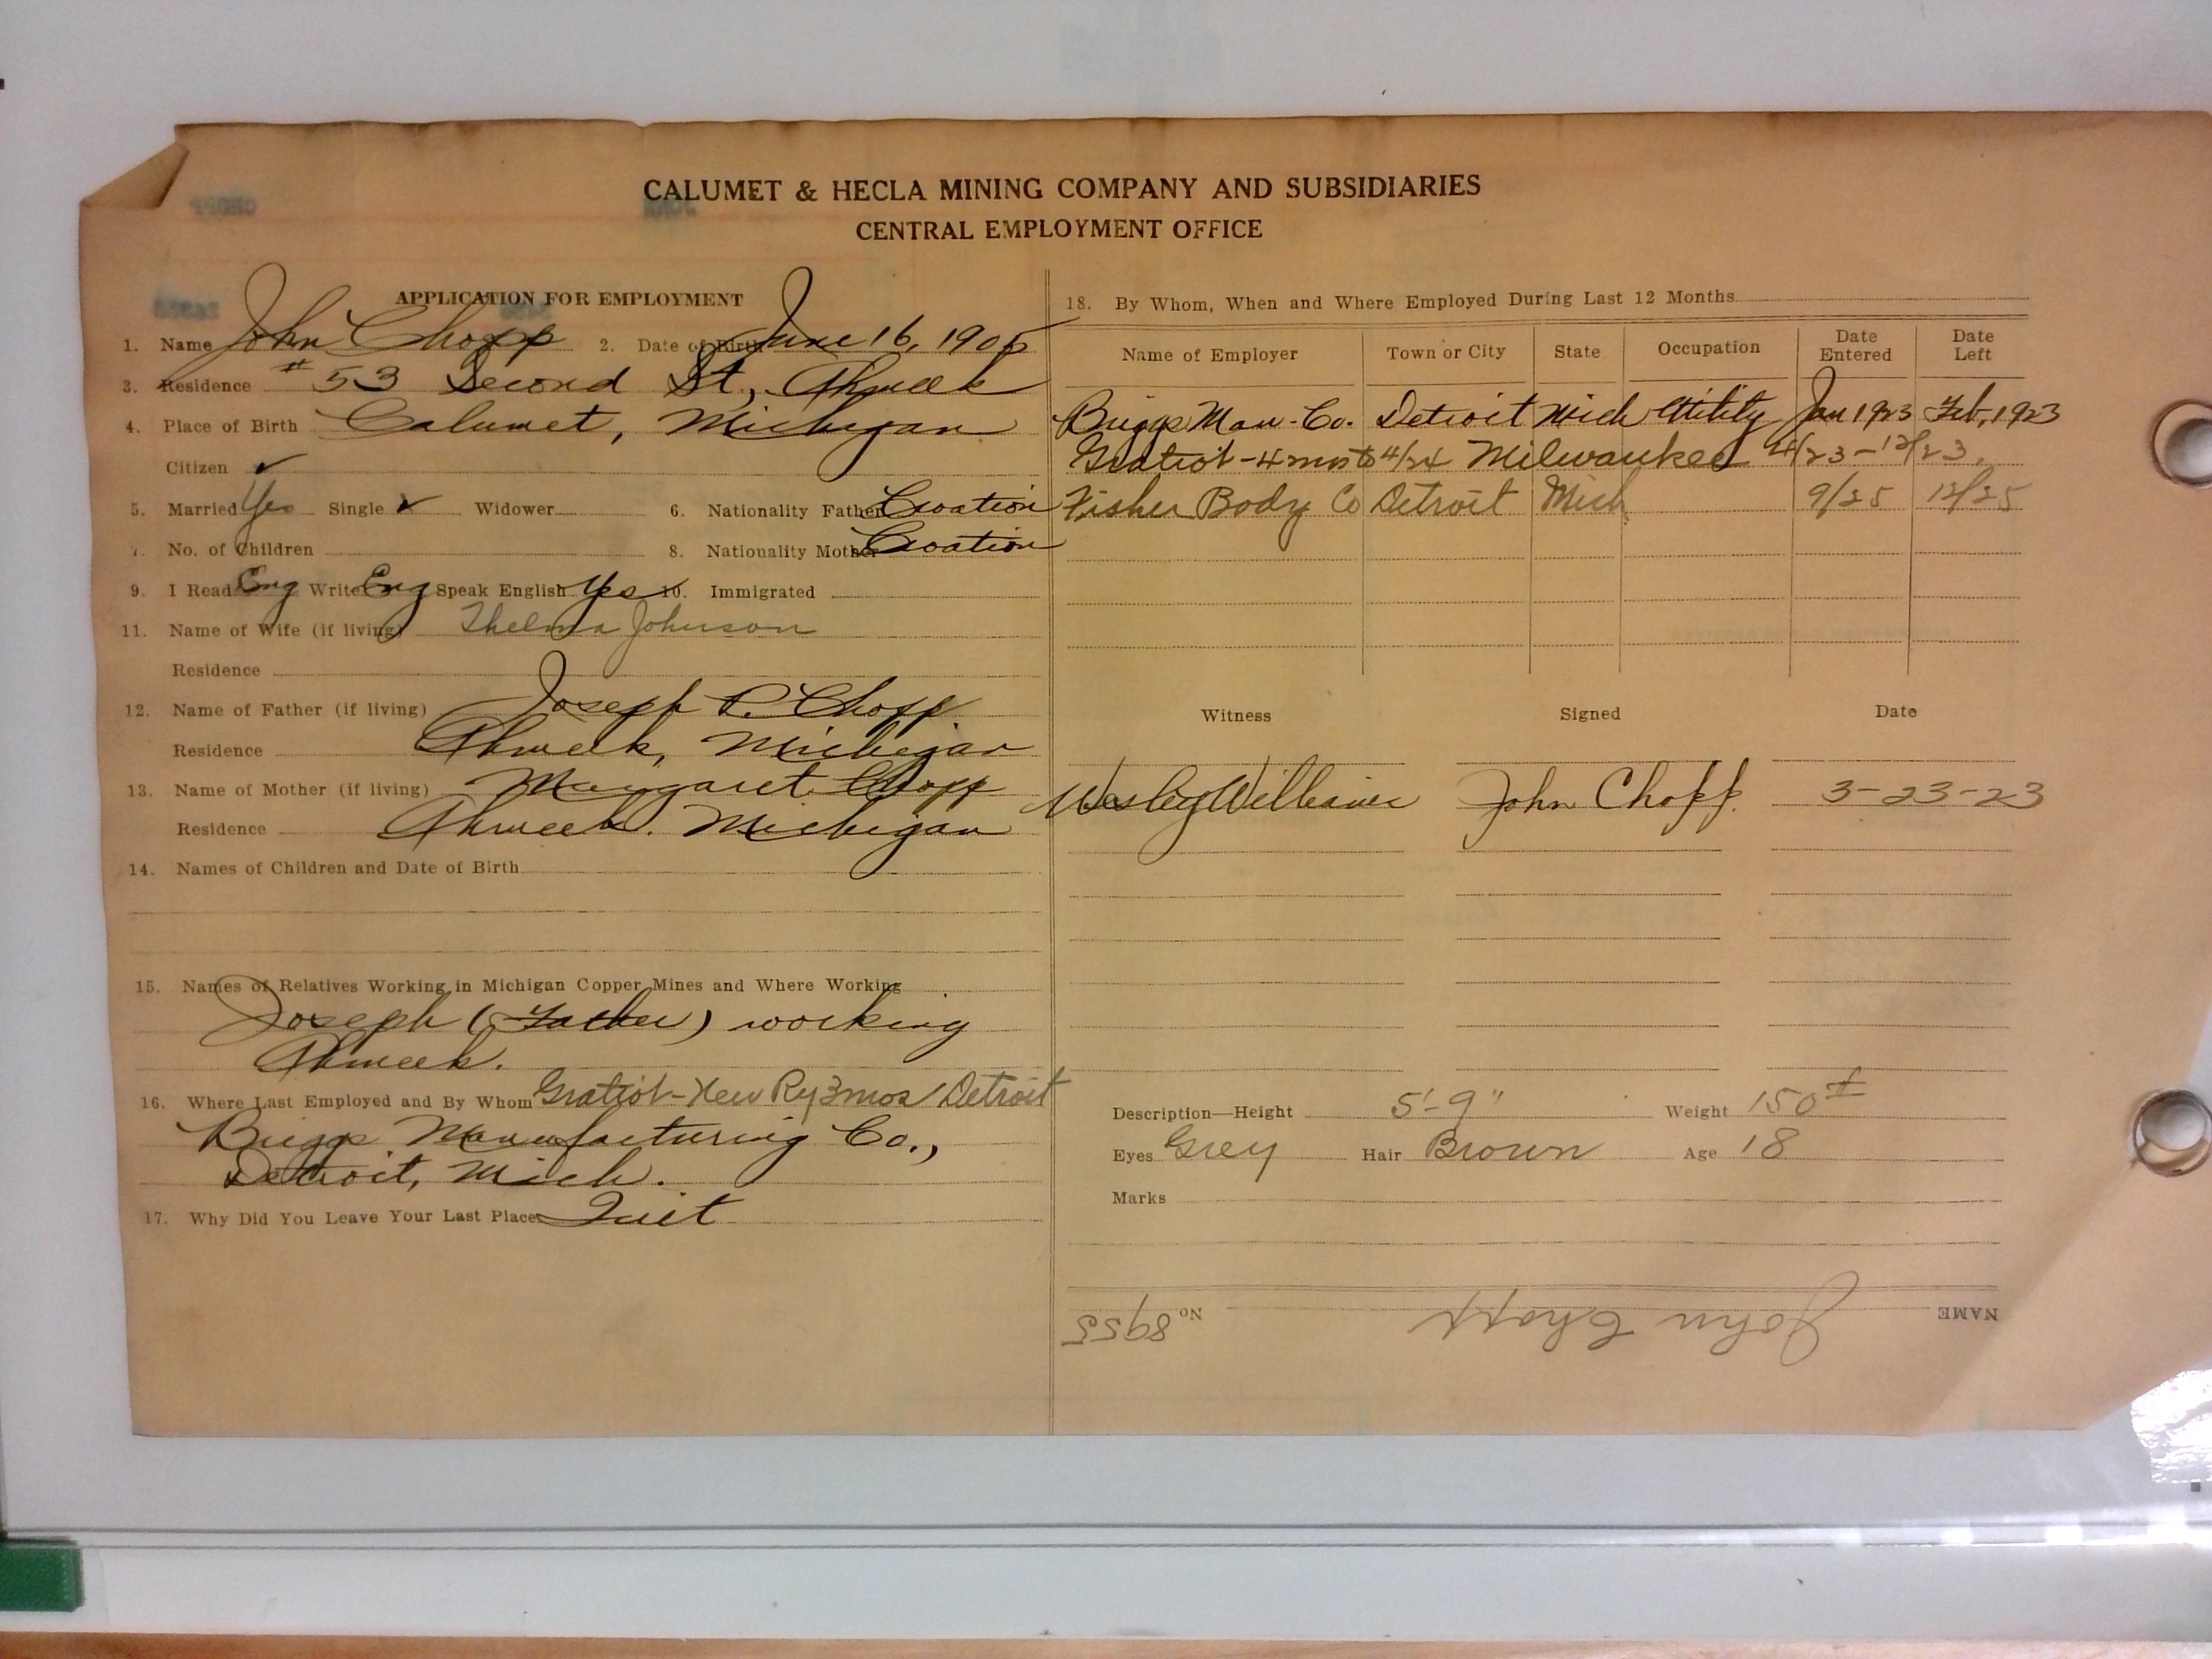 CALUMET & HECLA MINING COMPANY AND SUBSIDIARIES
CENTRAL EMPLOYMENT OFFICE
APPLICATION FOR EMPLOYMENT
1. Name John Chopp 2. Date of Birth June 16, 1905
3. Residence #53 Second St., Ahmeek
4. Place of Birth Calumet, Michigan
Citizen ✓
5. Married Yes Single ✓ Widower 6. Nationality Father Croation
7. No. of Children 8. Nationality Mother Croation
9. I Read Eng Write Eng Speak English Yes 10. Immigrated
11. Name of Wife (if living) Thelma Johnson
Residence
12. Name of Father (if living) Joseph P. Chopp
Residence Ahmeek, Michigan
13. Name of Mother (if living) Margaret Chopp
Residence Ahmeek. Michigan
14. Names of Children and Date of Birth
15. Names of Relatives Working in Michigan Copper Mines and Where Working
Joseph (Father) working
Ahmeek.
16. Where Last Employed and By Whom Gratiot - New Ry 3 mos / Detroit
Briggs Manufacturing Co.,
Detroit, Mich.
17. Why Did You Leave Your Last Place Quit
18. By Whom, When and Where Employed During Last 12 Months
Name of Employer Town or City State Occupation Date Entered Date Left
Briggs Man. Co. Detroit Mich Utility Jan 1923 Feb, 1923
Gratiot - 4 mos to 4/24 Milwaukee 4/23 - 12/23.
Fisher Body Co Detroit Mich 9/25 12/25
Witness Signed Date
Wesley Williams John Chopp. 3-23-23
Description—Height 5'-9" Weight 150 ±
Eyes Grey Hair Brown Age 18
Marks
NAME John Chopp No. 8955